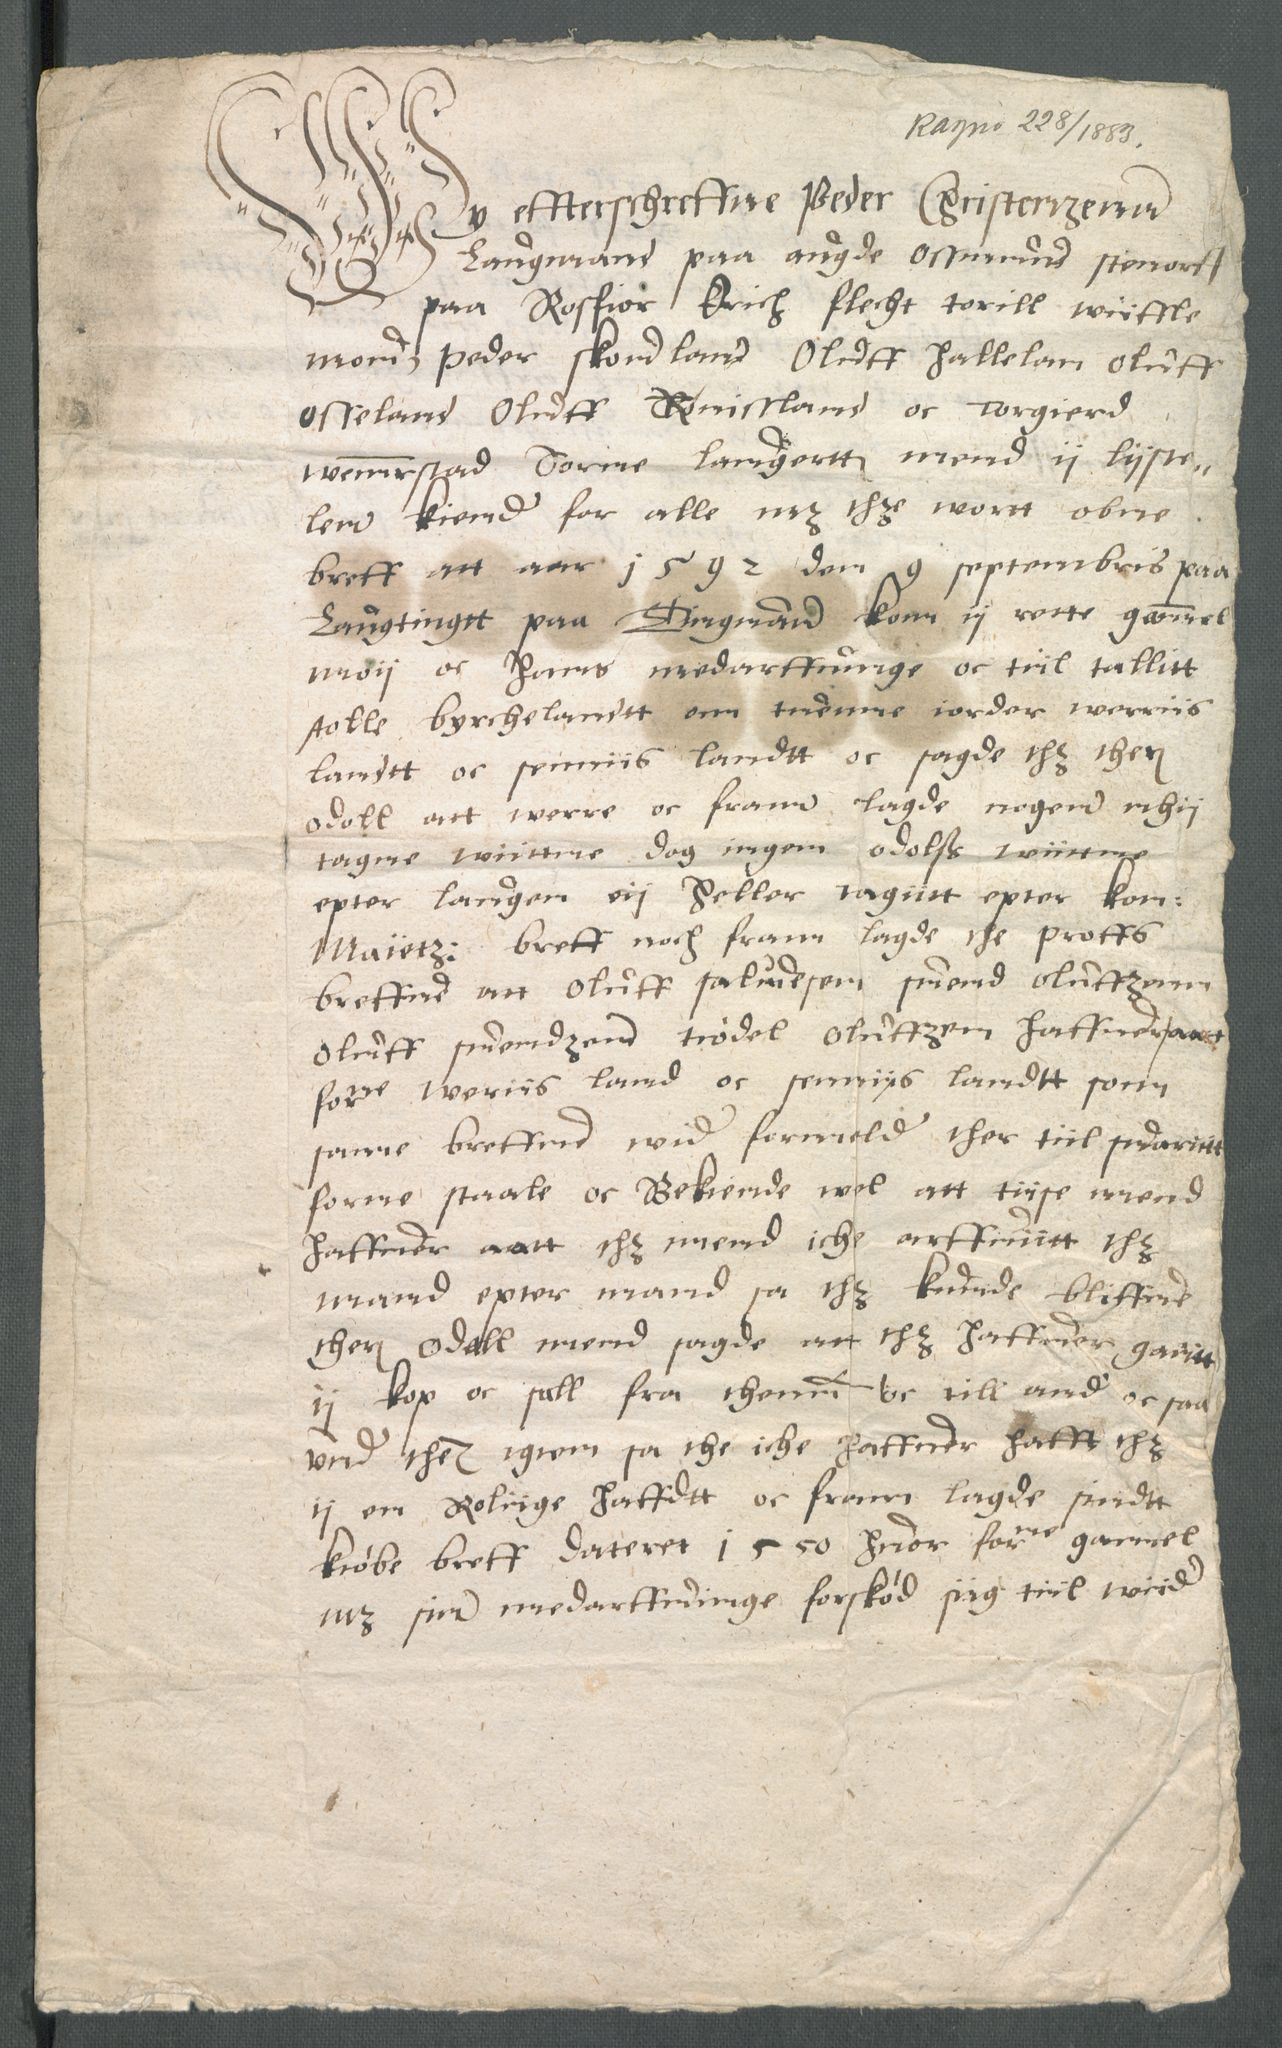 Ragno 228/1883.
Wy effterschreffne Peder Christenzenn
Laugmand paa augde Ossmund stenort
paa Rosfior Erich flecht torill wiistle
mond Peder skondland Oluff hallelan oluff
osseland Oluff Knissland oc torgierd
wemmestad Sorne laugrett mend ij lijste„
len kiende for alle mz thze wortt obne
breff att aar 1592 den 9 septembris paa
Laugtingtt paa Tingmand kom ij rette gammel
moij oc hans medarffuinge oc tiil tallitt
stolle byrchelandtt om tuenne iorder werriis
landtt oc senniis landtt oc sagde thz ther
odoll att werre oc fram lagde nogen nhij
tagne wiittne dog ingen odolss wiittne
epter laugen eij heller tagiitt epter kon:
Maiietz: breff noch fram lagde the proffs
breffue att oluff saluesen suend oluffzenn
oluff suendzenn tiødel oluffzen haffuer aatt
forne weriis land oc senniis landtt som
samme breffue wide formelde ther tiil suaritt
forne staale oc Bekiende wel att tiise mend
haffuer aatt thz mend iche arffuiitt thz
mand epter mand sa thz kunde bliffue
ther odell mend sagde att thz haffuer gaaitt
ij kop oc sall fra thenn ene till ande oc saa
vnde ther igien sa the iche haffuer hafft thz
ij en Rolige haffdtt oc fram lagde sindtt
kiøbe breff dateret 1550 huor forne gamel
mz sine medarffuinge forskød siig tiil wiide